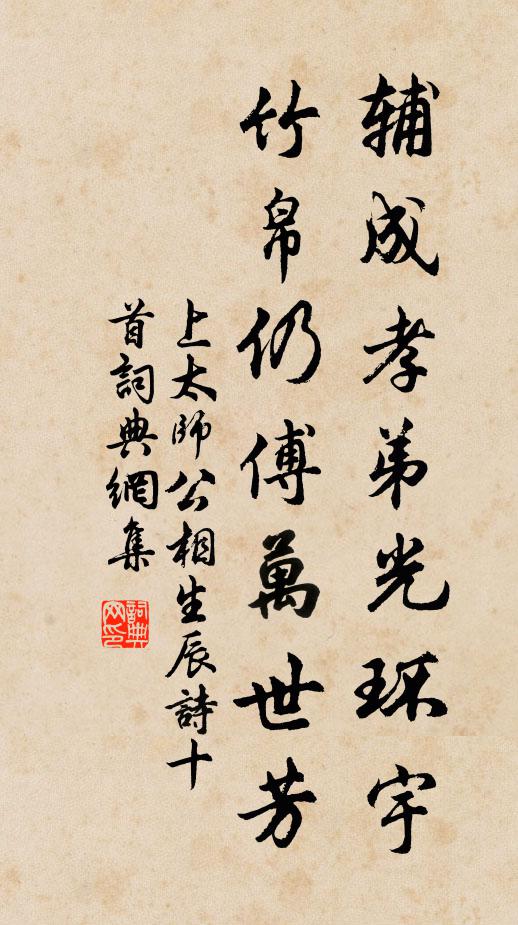 辅成孝弟光环宇
竹帛仍傅萬世芳
上太師公相生辰詩十
首詞典網集
詞典网印